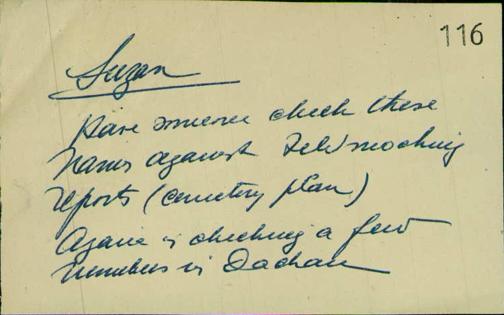 116
Suzan
Have someone check these
names against Feldmoching
reports (cemetery plan)
Again is checking a few
numbers in Dachau